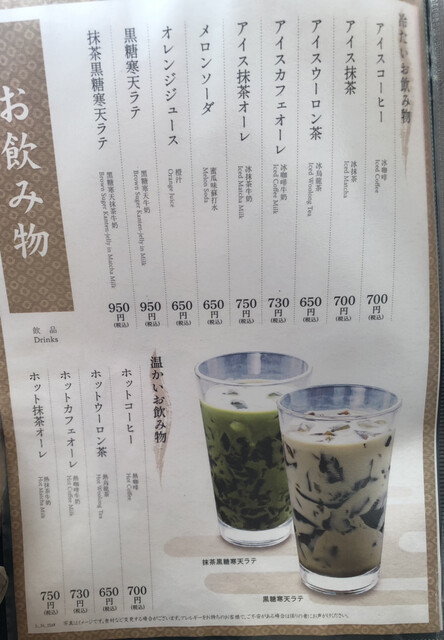 お飲み物
飲品
Drinks
冷たいお飲み物
アイスコーヒー
冰咖啡
Iced Coffee
700円(税込)
アイス抹茶
冰抹茶
Iced Matcha
700円(税込)
アイスウーロン茶
冰烏龍茶
Iced Woolong Tea
650円(税込)
アイスカフェオーレ
冰咖啡牛奶
Iced Coffee Milk
730円(税込)
アイス抹茶オーレ
冰抹茶牛奶
Iced Matcha Milk
750円(税込)
メロンソーダ
蜜瓜味蘇打水
Melon Soda
650円(税込)
オレンジジュース
橙汁
Orange Juice
650円(税込)
黒糖寒天ラテ
黑糖寒天牛奶
Brown Sugar Kanten-jelly in Milk
950円(税込)
抹茶黒糖寒天ラテ
黑糖寒天抹茶牛奶
Brown Sugar Kanten-jelly in Matcha Milk
950円(税込)
温かいお飲み物
ホットコーヒー
熱咖啡
Hot Coffee
700円(税込)
ホットウーロン茶
熱烏龍茶
Hot Woolong Tea
650円(税込)
ホットカフェオーレ
熱咖啡牛奶
Hot Coffee Milk
730円(税込)
ホット抹茶オーレ
熱抹茶牛奶
Hot Matcha Milk
750円(税込)
抹茶黒糖寒天ラテ
黒糖寒天ラテ
写真はイメージです。食材など変更する場合がございます。アレルギーをお持ちのお客様で、ご不安がある場合は係りの者にお声がけください。